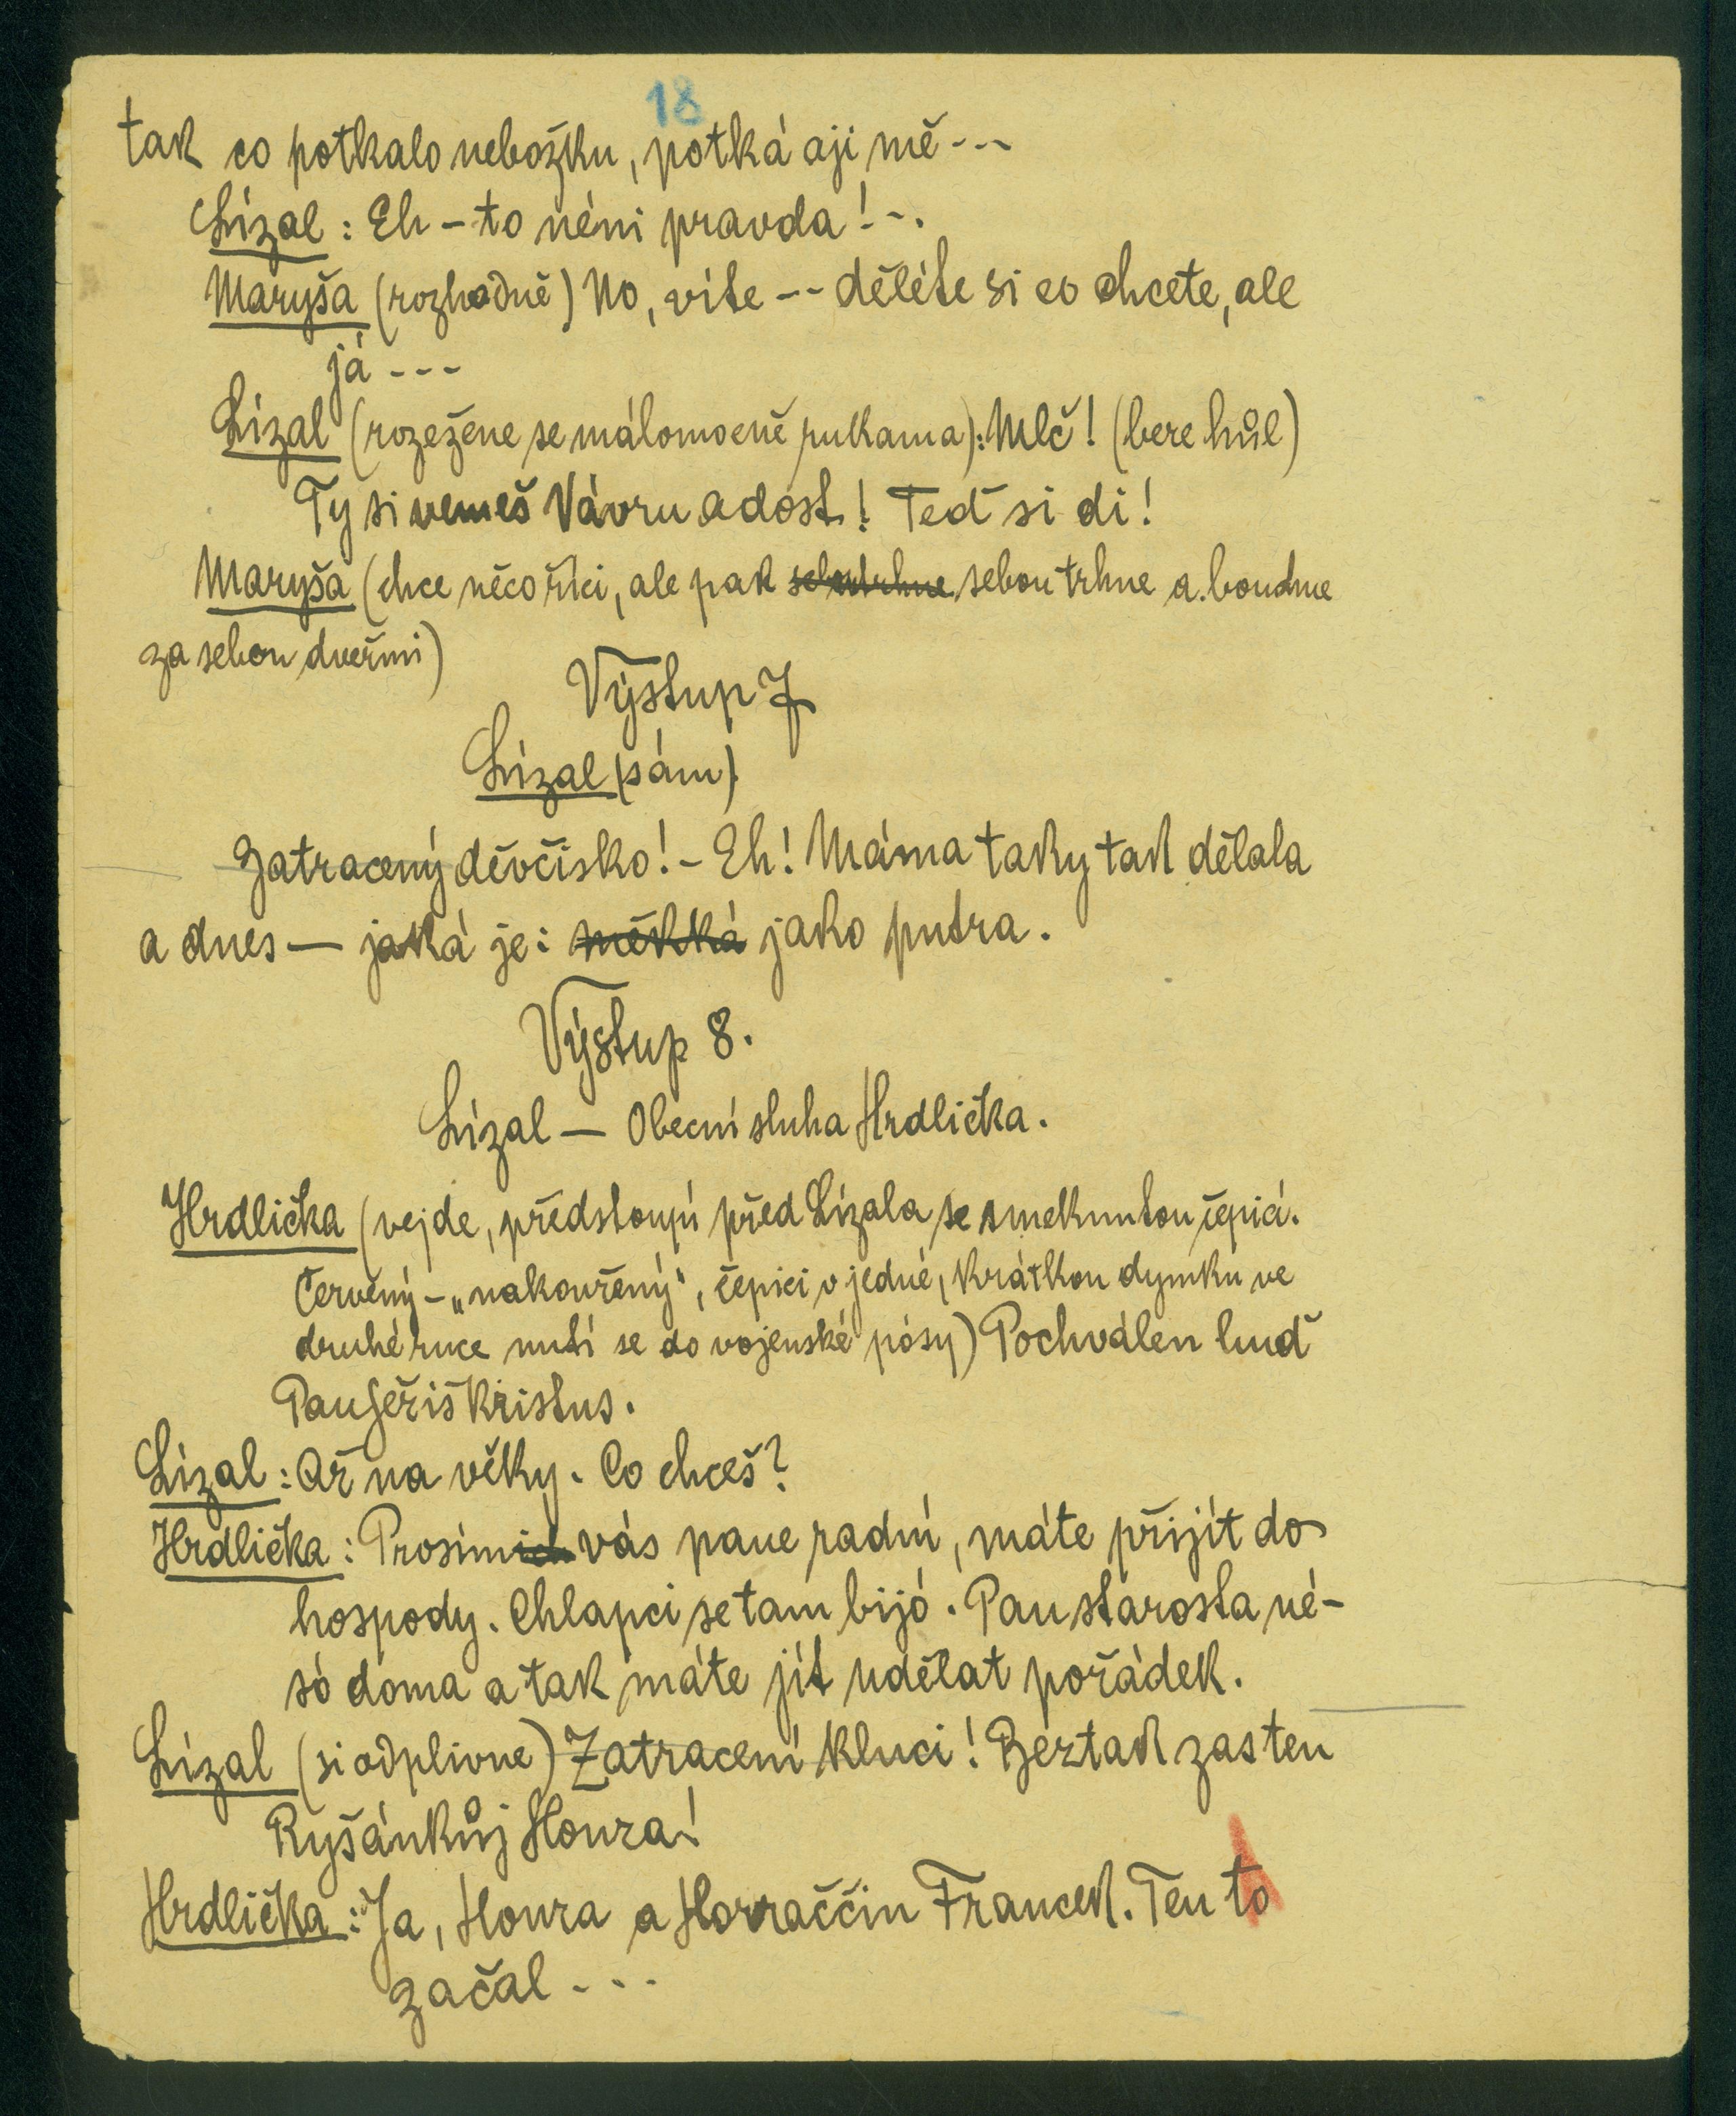 18
tak co potkalo nebožku, potká aji mě---
Lízal: Eh – to néni pravda! -.
Maryša (rozhodně) No, víte -- děléte si co chcete, ale
já ---
Lízal (rozežene se málomocně rukama): Mlč! (bere hůl)
Ty si vemeš Vávru a dost! Teď si di!
Maryša (chce něco říci, ale pak sebou trhne sebou trhne a bouchne
za sebou dveřmi)
Výstup 7
Lízal (sám)
Zatracený děvčisko! – Eh! Máma taky tak dělala
a dnes — jaká je: měkká jako putra.
Výstup 8.
Lízal — Obecní sluha Hrdlička.
Hrdlička (vejde, předstoupí před Lízala se smeknutou čepicí.
Červený – „nakouřený“, čepici v jedné, krátkou dymku ve
druhé ruce nutí se do vojenské pósy) Pochválen buď
Pan Ježiš Kristus.
Lízal: Až na věky. Co chceš?
Hrdlička: Prosím vás pane radní, máte přijít do
hospody. Chlapci se tam bijó. Pan starosta né-
só doma a tak máte jít udělat pořádek.
Lízal (si odplivne) Zatracení kluci! Beztak zas ten
Ryšánkůj Honza!
Hrdlička: Ja, Honza a Horraččin Francek. Ten to
začal ...